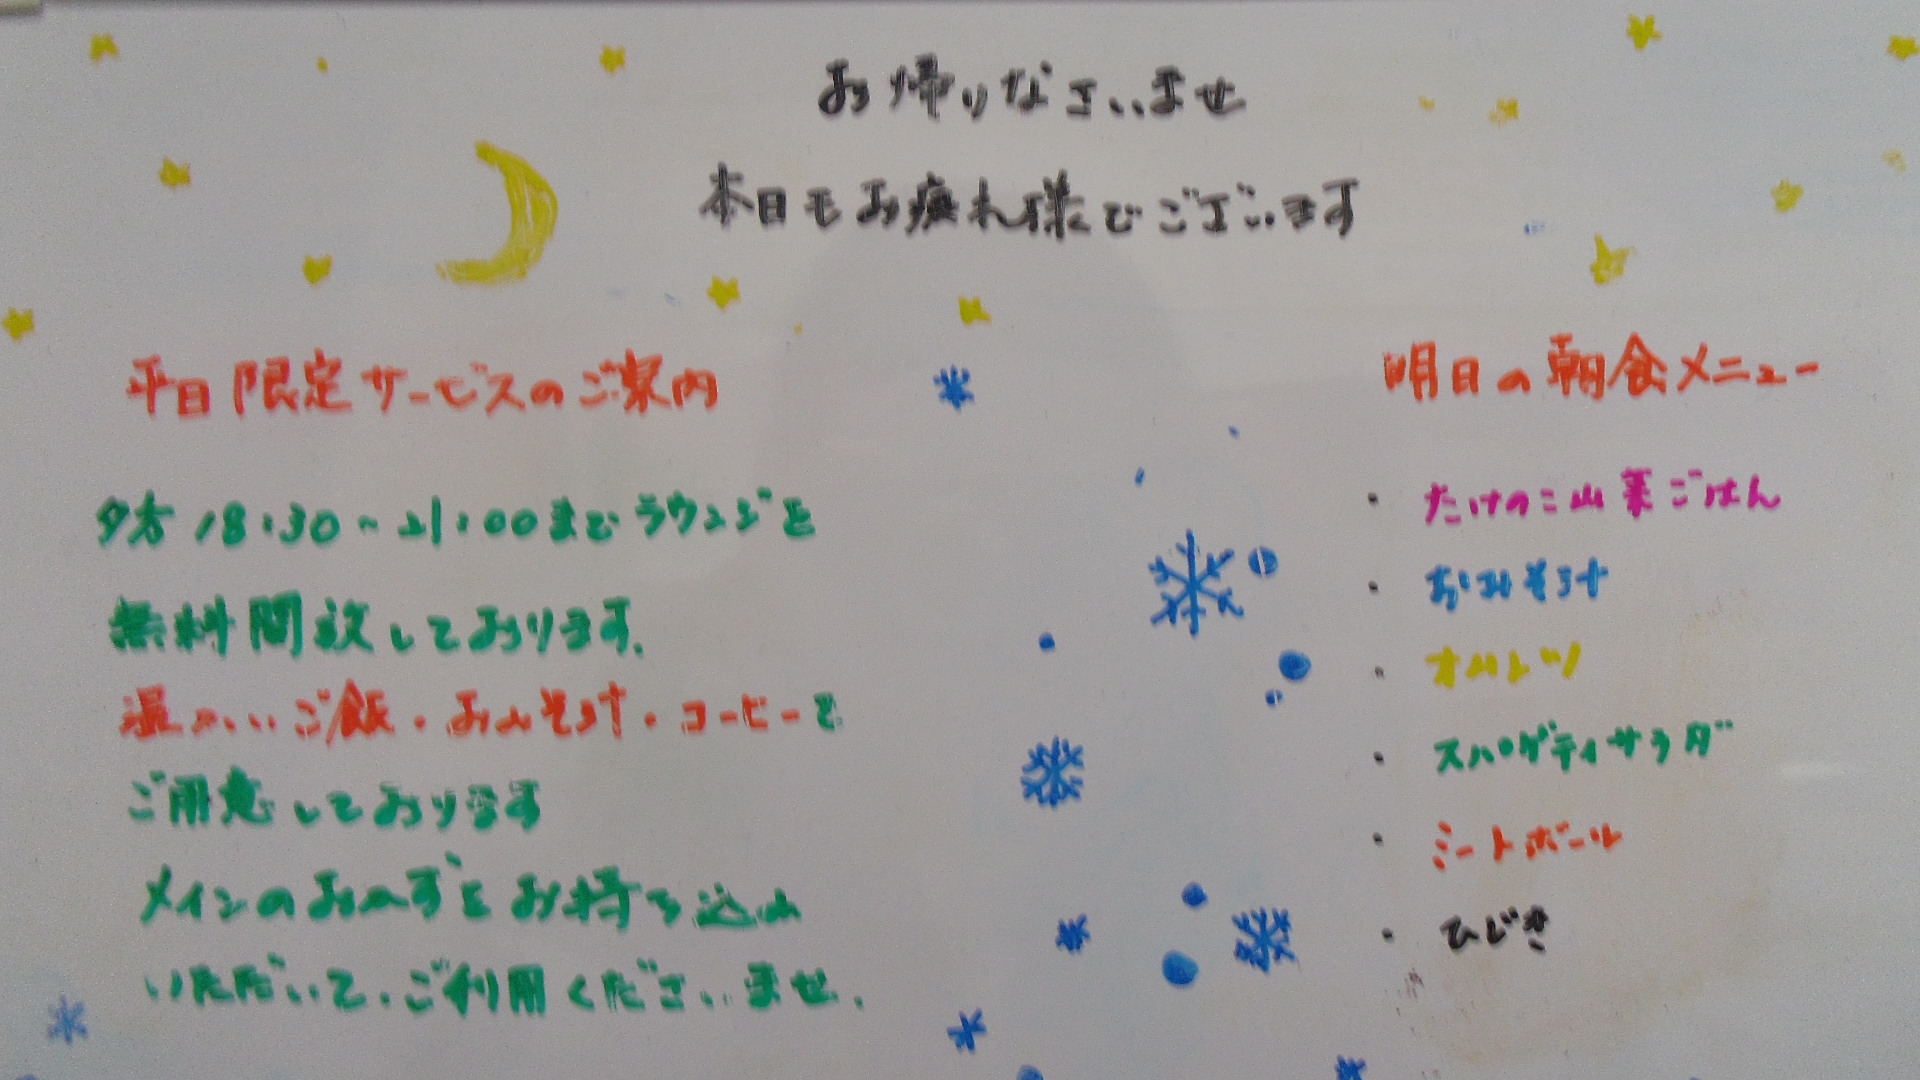 お帰りなさいませ
本日もお疲れ様でございます
平日限定サービスのご案内
夕方18:30~21:00までラウンジを
無料開放しております.
温かいご飯・おみそ汁・コーヒーを
ご用意しております
メインのおかずをお持ち込み
いただいて、ご利用くださいませ.
明日の朝食メニュー
・たけのこ山菜ごはん
・おみそ汁
・オムレツ
・スパゲティサラダ
・ミートボール
・ひじき